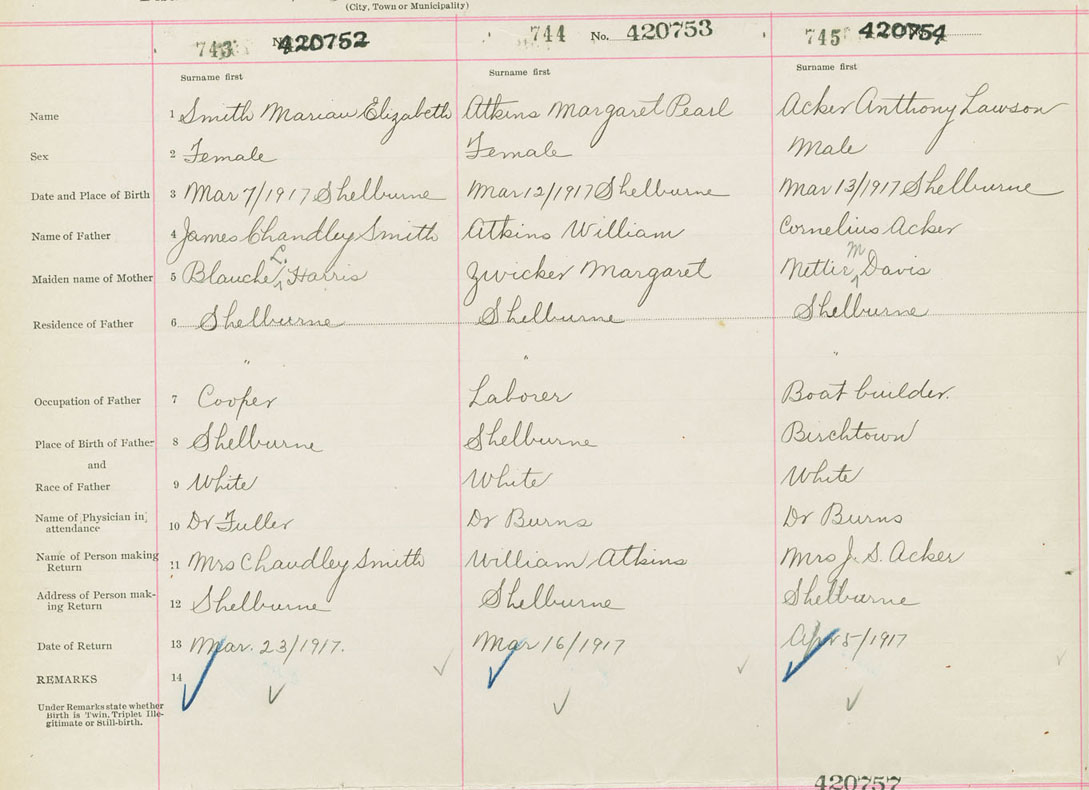 (City, Town or Municipality)
743 No. 420752 744 No. 420753 745 420754
Surname first Surname first Surname first
Name 1 Smith Marian Elizabeth Atkins Margaret Pearl Acker Anthony Lawson
Sex 2 Female Female Male
Date and Place of Birth 3 Mar 7/1917 Shelburne Mar 12/1917 Shelburne Mar 13/1917 Shelburne
Name of Father 4 James Chandley Smith Atkins William Cornelius Acker
Maiden name of Mother 5 Blanche L. Harris Zwicker Margaret Nettie M Davis
Residence of Father 6 Shelburne Shelburne Shelburne
" " "
Occupation of Father 7 Cooper Laborer Boat builder.
Place of Birth of Father 8 Shelburne Shelburne Birchtown
and
Race of Father 9 White White White
Name of Physician in attendance 10 Dr Fuller Dr Burns Dr Burns
Name of Person making Return 11 Mrs Chandley Smith William Atkins Mrs J. S. Acker
Address of Person mak-ing Return 12 Shelburne Shelburne Shelburne
Date of Return 13 Mar. 23/1917. Mar 16/1917 Apr 5/1917
REMARKS 14
Under Remarks state whether
Birth is Twin, Triplet Ille-
gitimate or Still-birth.
420757